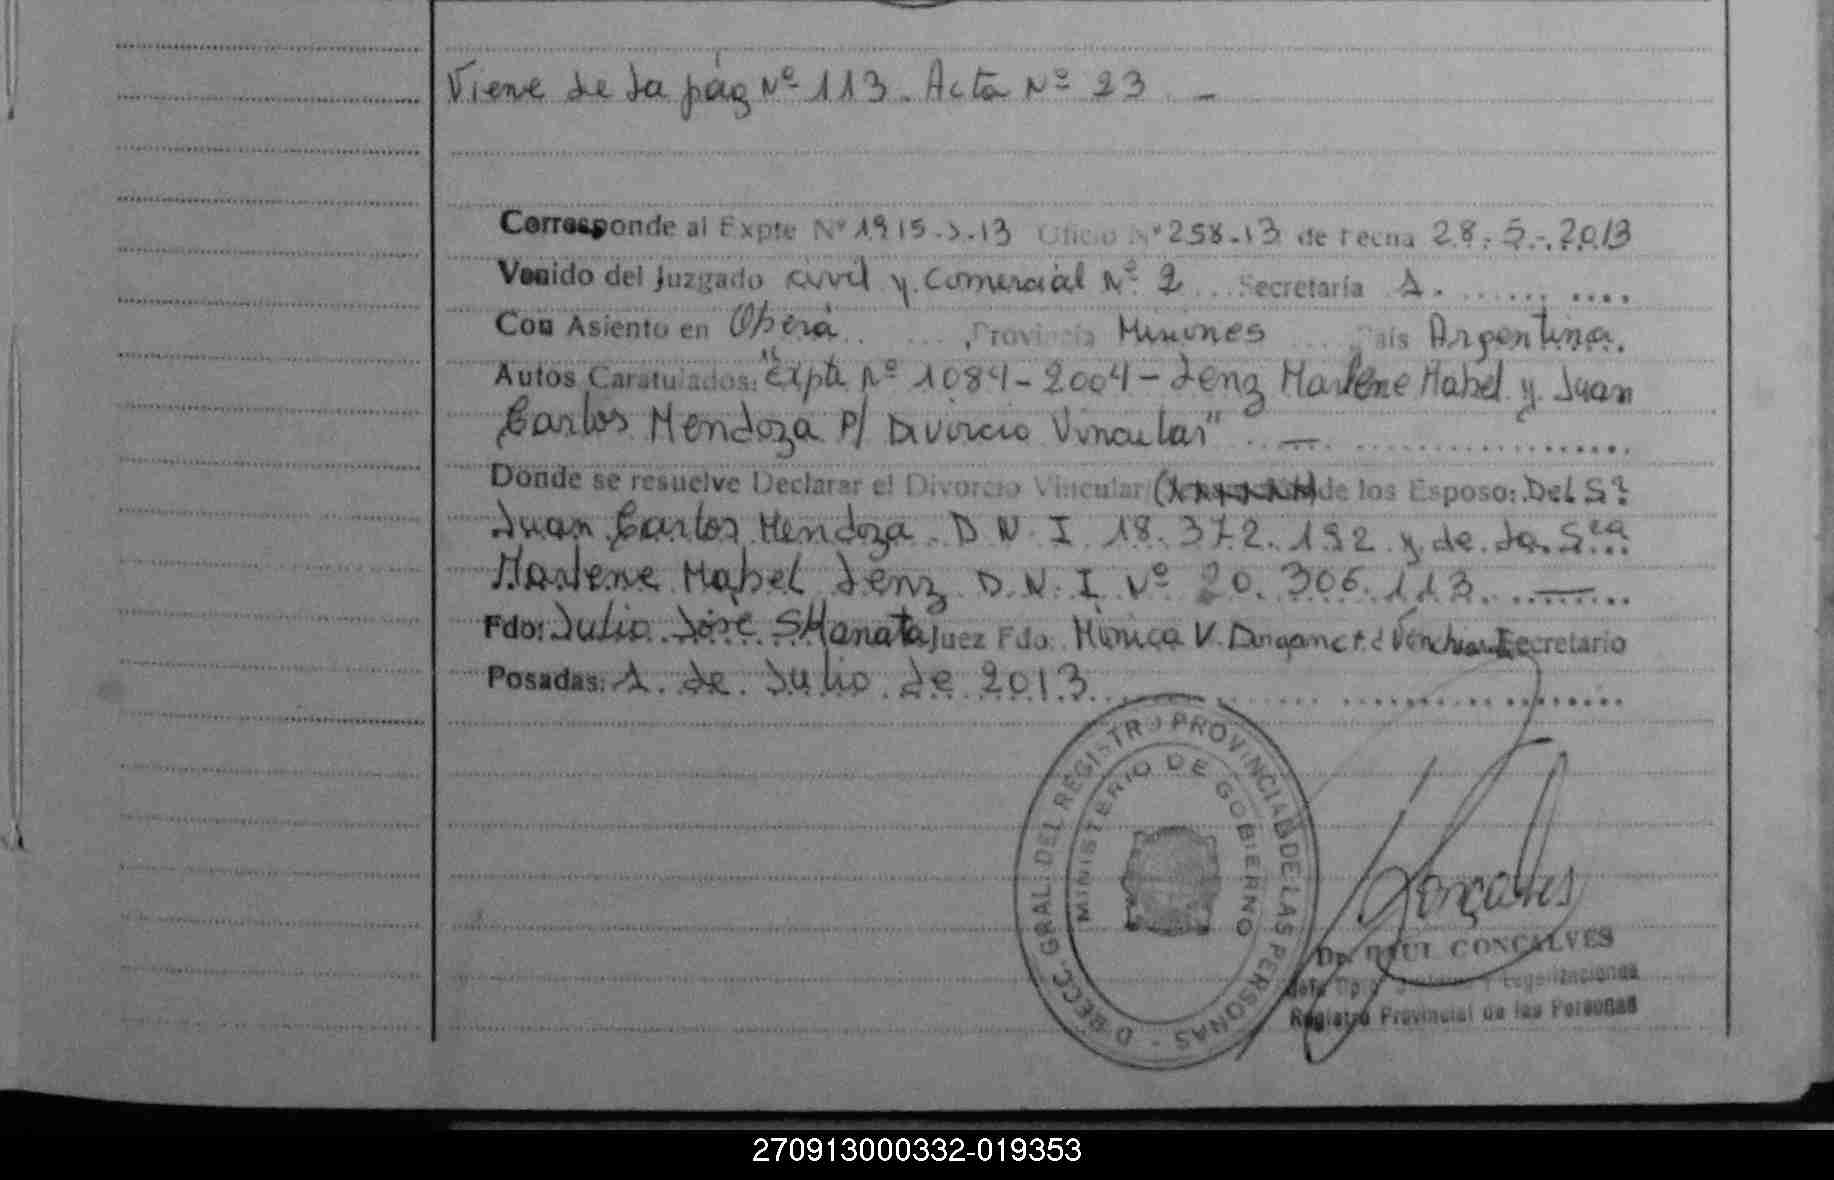 Viene de la pág Nº 113. Acta Nº 23. -
Corresponde al Expte Nº 1915-J-13 Oficio Nº 258-13 de Fecha 28-5-2013
Venido del Juzgado civil y Comercial Nº 2 Secretaría 1.
Con Asiento en Oberá Provincia Misiones País Argentina.
Autos Caratulados: "Expte Nº 1084-2004-Lenz Marlene Mabel y Juan
Carlos Mendoza P/ Divorcio Vincular" -
Donde se resuelve Declarar el Divorcio Vincular de los Esposo: Del Sr
Juan Carlos Mendoza D N I 18.372.192 y de la Sra
Marlene Mabel Lenz D.N.I Nº 20.306.113. -
Fdo: Julio José Juez Fdo: Mónica V. de Secretario
Posadas: 1 de Julio de 2013
DIRECC. GRAL. DEL REGISTRO PROVINCIAL DE LAS PERSONAS -
MINISTERIO DE GOBIERNO
Gonçalves
Dr. RAUL GONÇALVES
Jefe Dpto. y Legalizaciones
Registro Provincial de las Personas
270913000332-019353